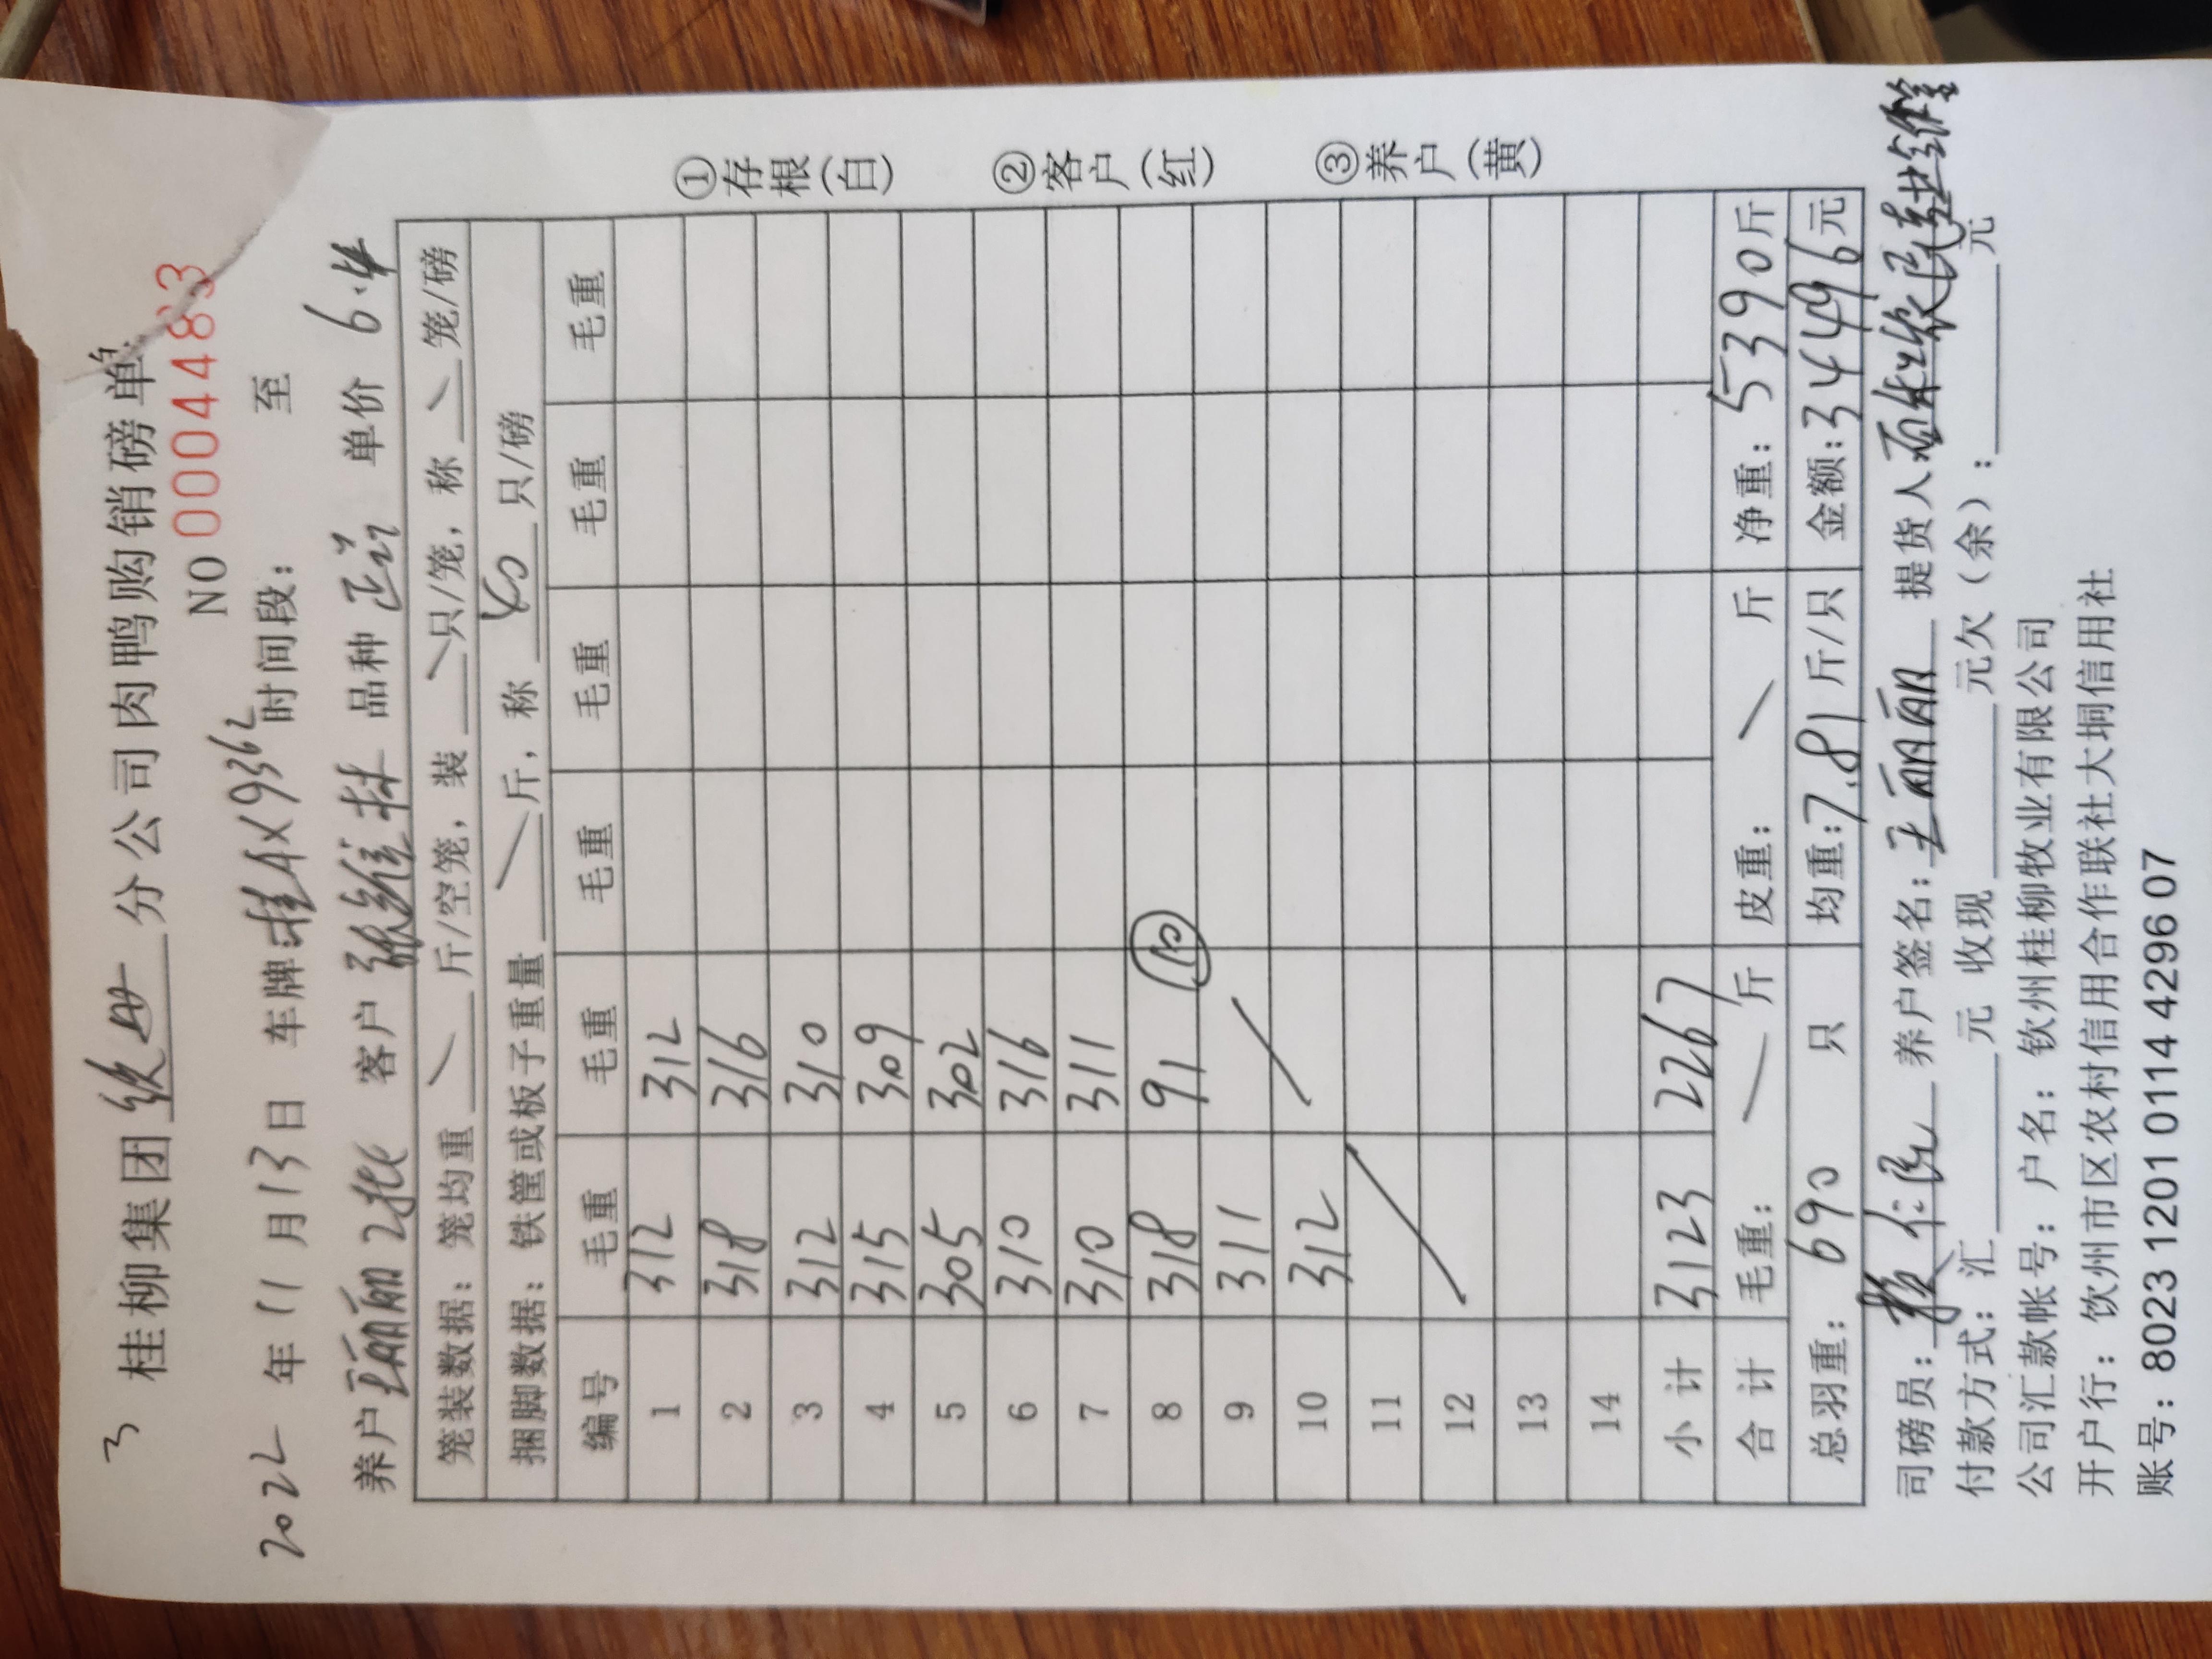 3 桂柳集团 分公司肉鸭购销磅单
NO 0004483
2022 年 11 月 13 日 车牌 桂AX9362 时间段： 至
养户 王丽丽 2批 客户 张维林 品种 正 单价 6.4
笼装数据：笼均重 / 斤/空笼，装 / 只/笼，称 / 笼/磅
捆脚数据：铁筐或板子重量 / 斤，称 40 只/磅
编号 毛重 毛重 毛重 毛重 毛重 毛重
1 312 312
2 318 316
3 312 310
4 315 309
5 305 302
6 310 316
7 310 311
8 318 91 ⑩
9 311 /
10 312
11 /
12
13
14
小计 3123 2267
合计 毛重： / 斤 皮重： / 斤 净重：5390斤
总羽重：690 只 均重：7.81斤/只 金额：34496元
司磅员： 养户签名：王丽丽 提货人
付款方式：汇 元 收现 元欠（余）： 元
公司汇款帐号：户名：钦州桂柳牧业有限公司
开户行：饮州市区农村信用合作联社大垌信用社
账号：8023 1201 0114 4296 07
①存根(白)
②客户(红)
③养户(黄)